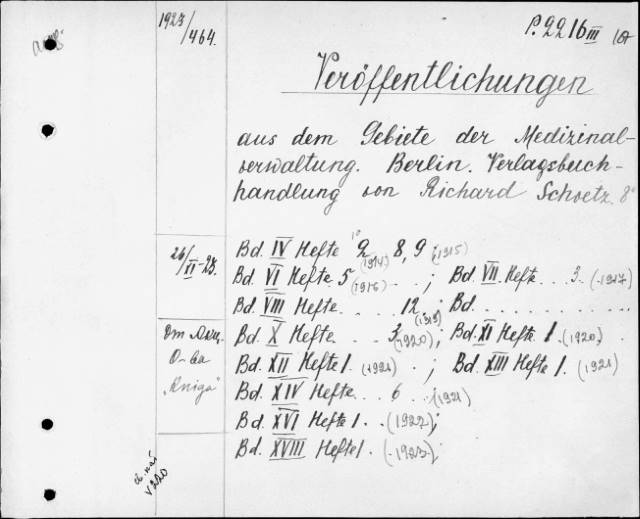 1923/464.
P. 2216 III
Veröffentlichungen
aus dem Gebiete der Medizinal-
verwaltung. Berlin. Verlagsbuch-
handlung von Richard Schoetz. 8°
26/VI-23.
Bd. IV Hefte 2 (1914) 8, 9 (1915)
Bd. VI Hefte 5 (1916) . . ; Bd. VII Hefte . . 3. (1917)
Bd. VIII Hefte . . . 12 (1919); Bd. . . . . . . . . . .
Bd. X Hefte . . 3 (1920); Bd. XI Hefte 1. (1920) .
О-ва
Bd. XII Hefte 1. (1921) . ; Bd. XIII Hefte 1. (1921)
"Книга"
Bd. XIV Hefte . . 6 . . (1921)
Bd. XVI Hefte 1. . (1922);
Bd. XVIII Hefte 1. . (1923);